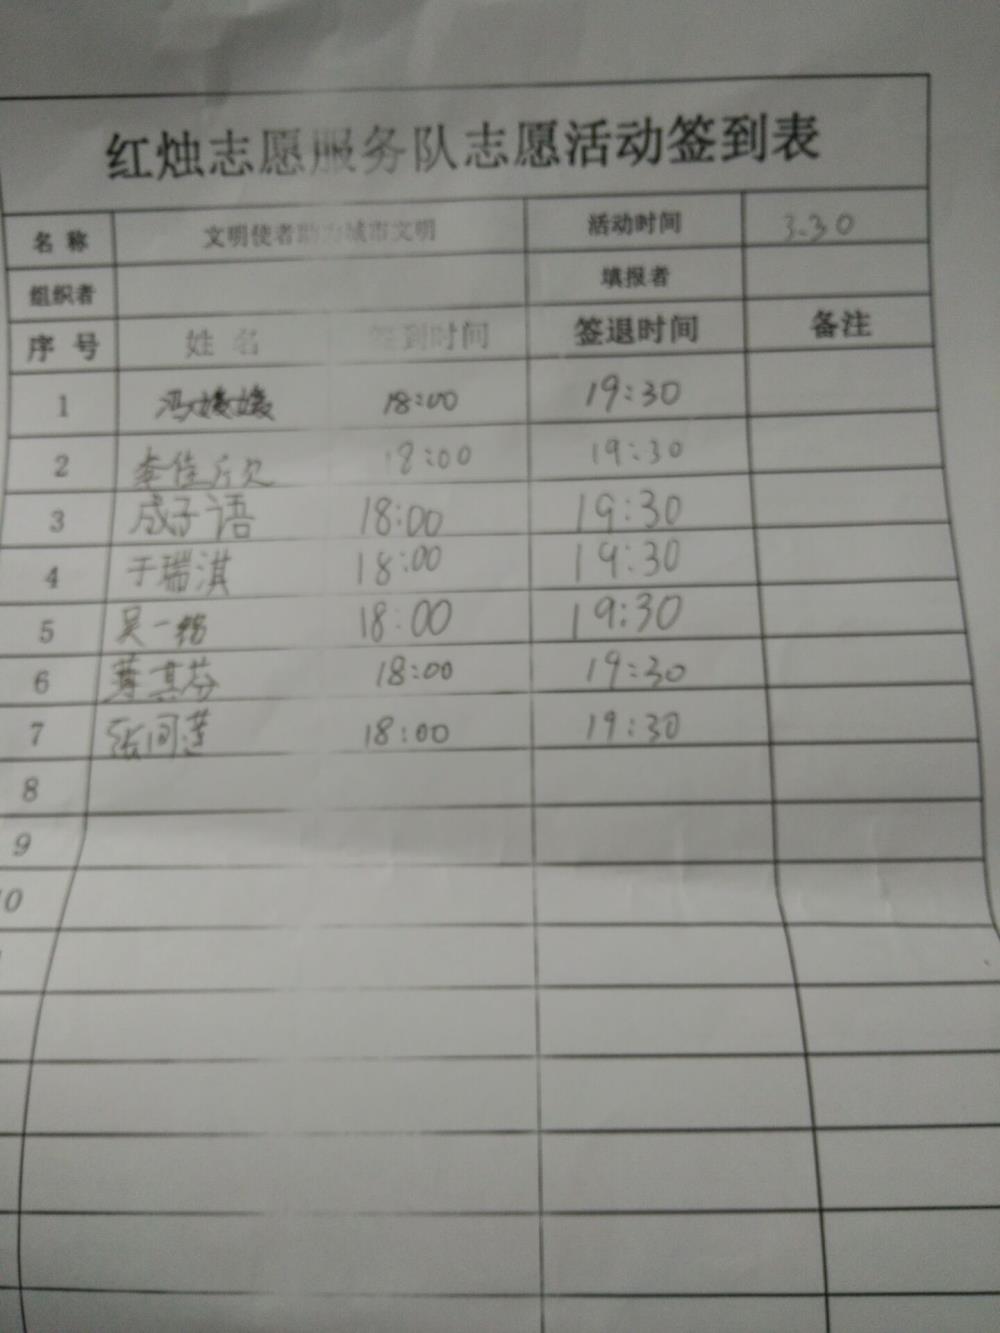 红烛志愿服务队志愿活动签到表
名称 文明使者助力城市文明 活动时间 3.30
组织者 填报者
序号 姓名 签到时间 签退时间 备注
1 冯媛媛 18:00 19:30
2 李佳欣 18:00 19:30
3 成子语 18:00 19:30
4 于瑞淇 18:00 19:30
5 吴一 18:00 19:30
6 其芬 18:00 19:30
7 张同莲 18:00 19:30
8
9
10